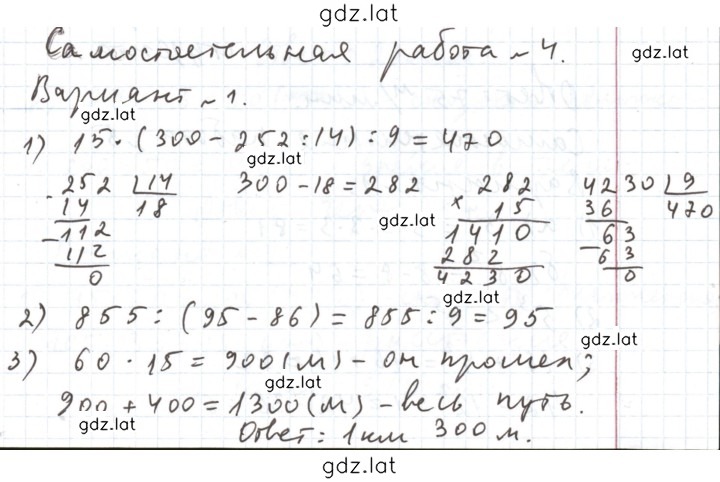 gdz.lat
Самостоятельная работа ~ 4.
gdz.lat
Вариант ~ 1.
gdz.lat
1) 15 · (300 - 252 : 14) : 9 = 470
gdz.lat
252 14 300 - 18 = 282 282 4230 9
14 18 × 15 36 470
gdz.lat
- 112 1410 - 63
112 282 63
0 4230 0
gdz.lat
2) 855 : (95 - 86) = 855 : 9 = 95
gdz.lat
3) 60 · 15 = 900 (м) - он прошел;
gdz.lat
900 + 400 = 1300 (м) - весь путь.
gdz.lat
Ответ: 1 км 300 м.
gdz.lat